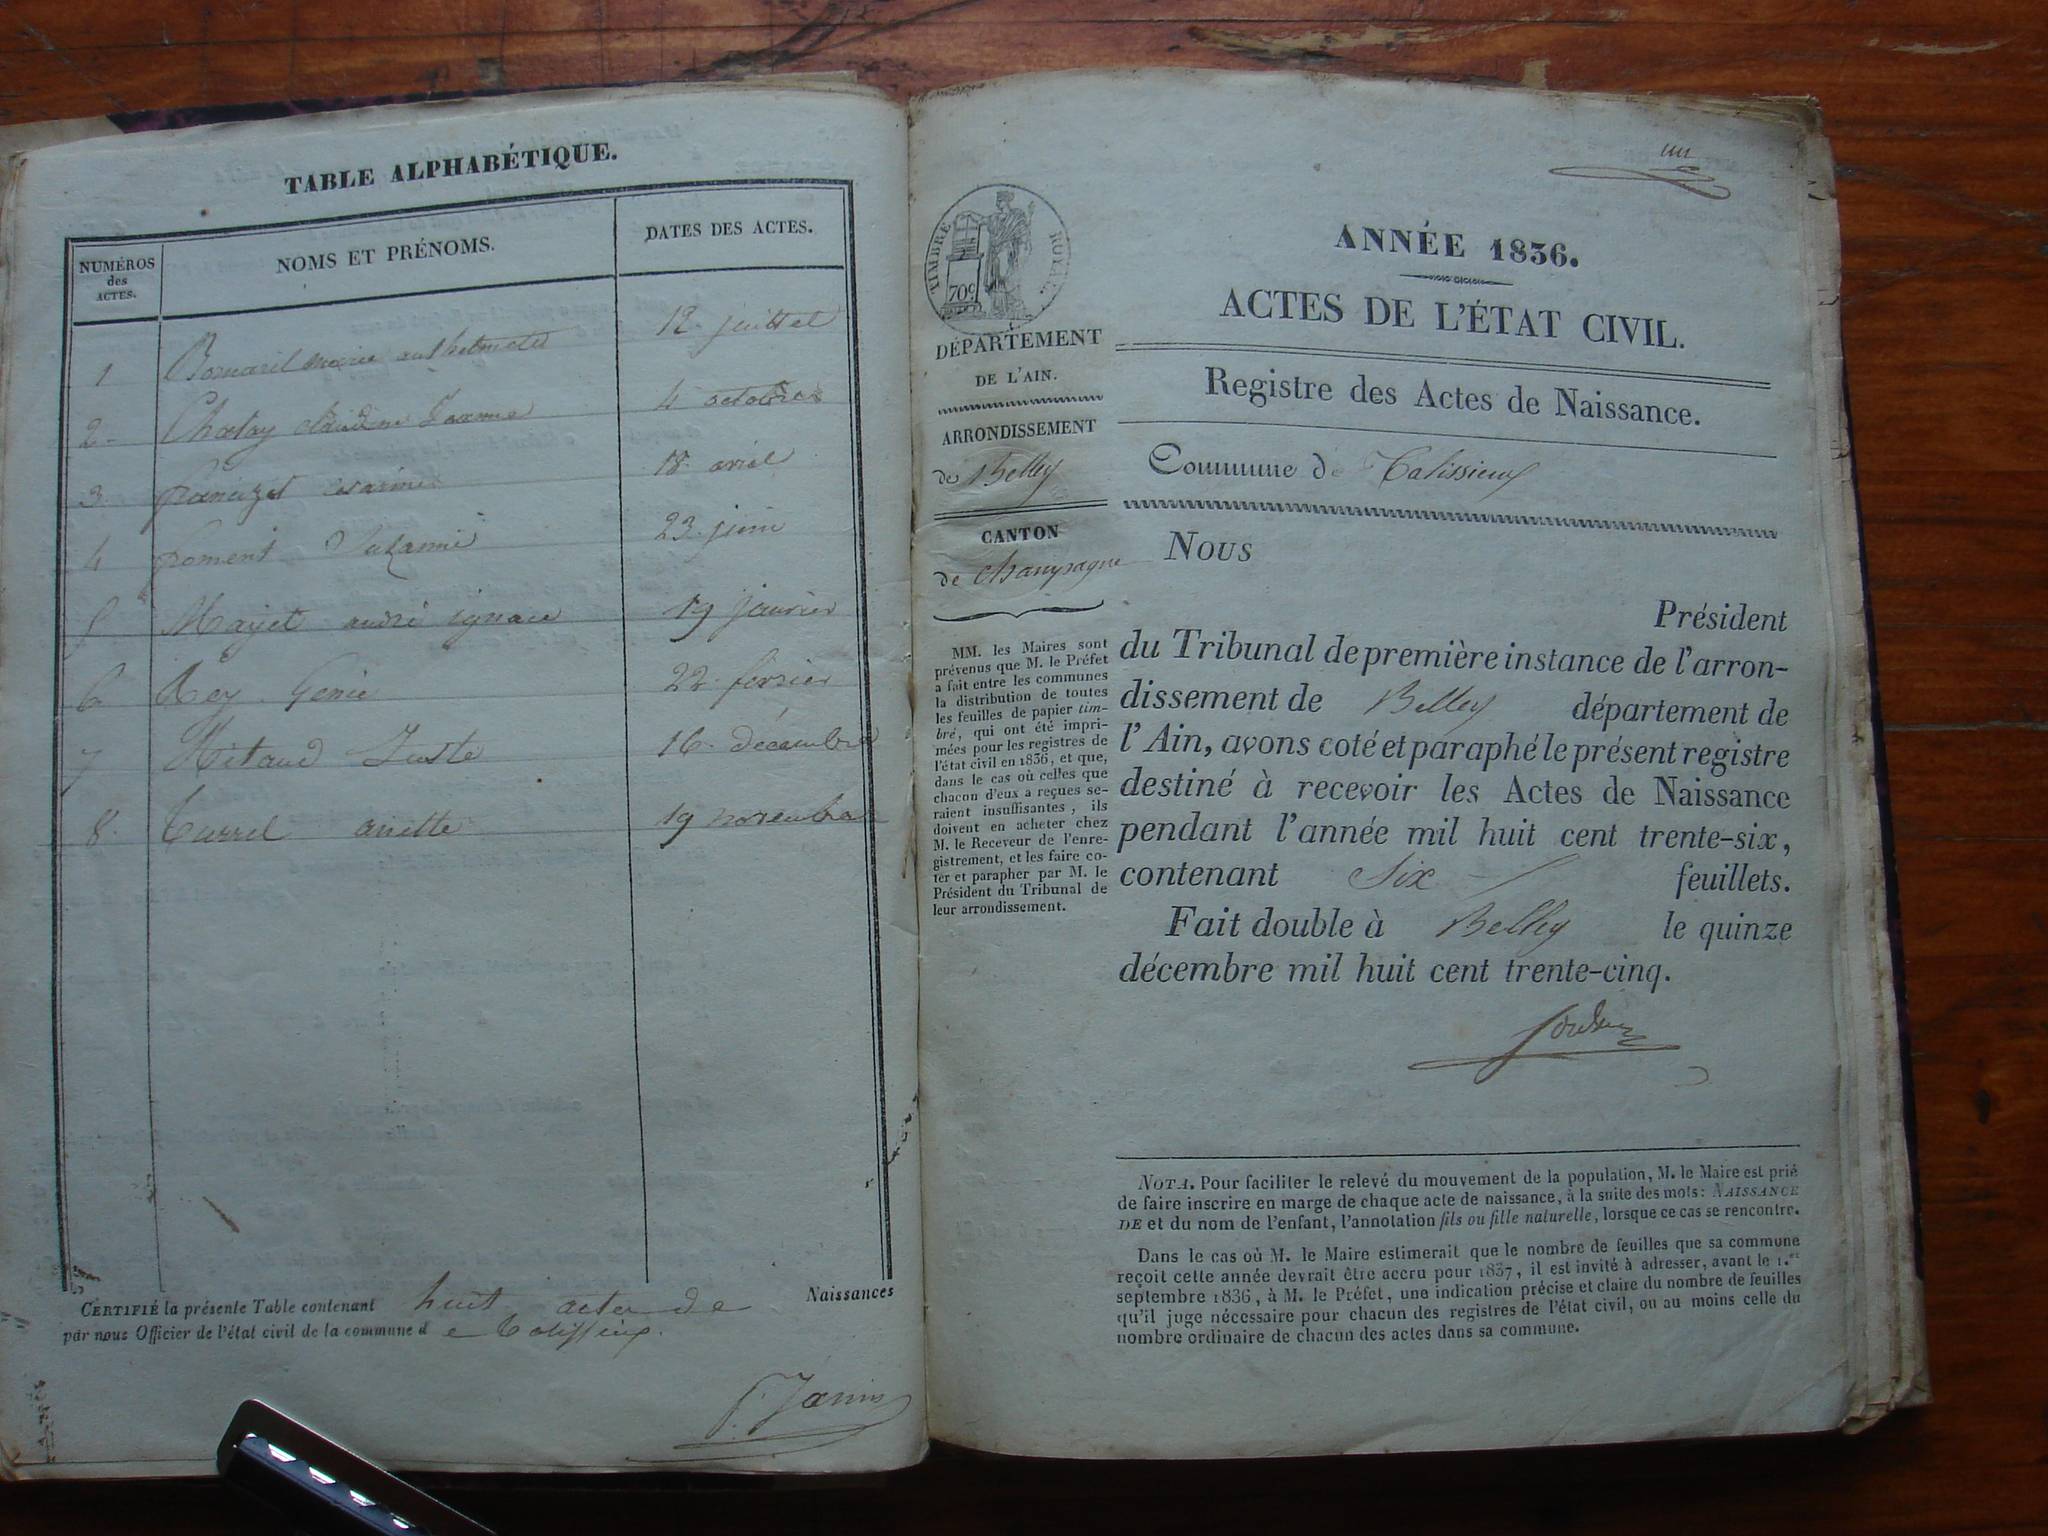 TABLE ALPHABÉTIQUE.
NUMÉROS
des
ACTES.
NOMS ET PRÉNOMS.
DATES DES ACTES.
1 marie 12. juillet
2 Claudine 4 octobre
3 18. avril
4 froment Suzanne 23. juin
5 Mayet andré ignace 19 janvier
6 Rey Genie 22. février
7 Juste 16. décembre
8. Turrel anette 19 novembre
CERTIFIÉ la présente Table contenant huit actes de Naissances
par nous Officier de l'état civil de la commune de Talissieux.
J. Janin
un
TIMBRE ROYAL
70c
DÉPARTEMENT
DE L'AIN.
ARRONDISSEMENT
de Belley
CANTON
de Champagne
MM. les Maires sont
prévenus que M. le Préfet
a fait entre les communes
la distribution de toutes
les feuilles de papier tim-
bré, qui ont été impri-
mées pour les registres de
l'état civil en 1836, et que,
dans le cas où celles que
chacun d'eux a reçues se-
raient insuffisantes, ils
doivent en acheter chez
M. le Receveur de l'enre-
gistrement, et les faire co-
ter et parapher par M. le
Président du Tribunal de
leur arrondissement.
ANNÉE 1836.
ACTES DE L'ÉTAT CIVIL.
Registre des Actes de Naissance.
Commune de Talissieux
Nous
Président
du Tribunal de première instance de l'arron-
dissement de Belley département de
l'Ain, avons coté et paraphé le présent registre
destiné à recevoir les Actes de Naissance
pendant l'année mil huit cent trente-six,
contenant Six feuillets.
Fait double à Belley le quinze
décembre mil huit cent trente-cinq.
NOTA. Pour faciliter le relevé du mouvement de la population, M. le Maire est prié
de faire inscrire en marge de chaque acte de naissance, à la suite des mots: NAISSANCE
DE et du nom de l'enfant, l'annotation fils ou fille naturelle, lorsque ce cas se rencontre.
Dans le cas où M. le Maire estimerait que le nombre de feuilles que sa commune
reçoit cette année devrait être accru pour 1837, il est invité à adresser, avant le 1.er
septembre 1836, à M. le Préfet, une indication précise et claire du nombre de feuilles
qu'il juge nécessaire pour chacun des registres de l'état civil, ou au moins celle du
nombre ordinaire de chacun des actes dans sa commune.